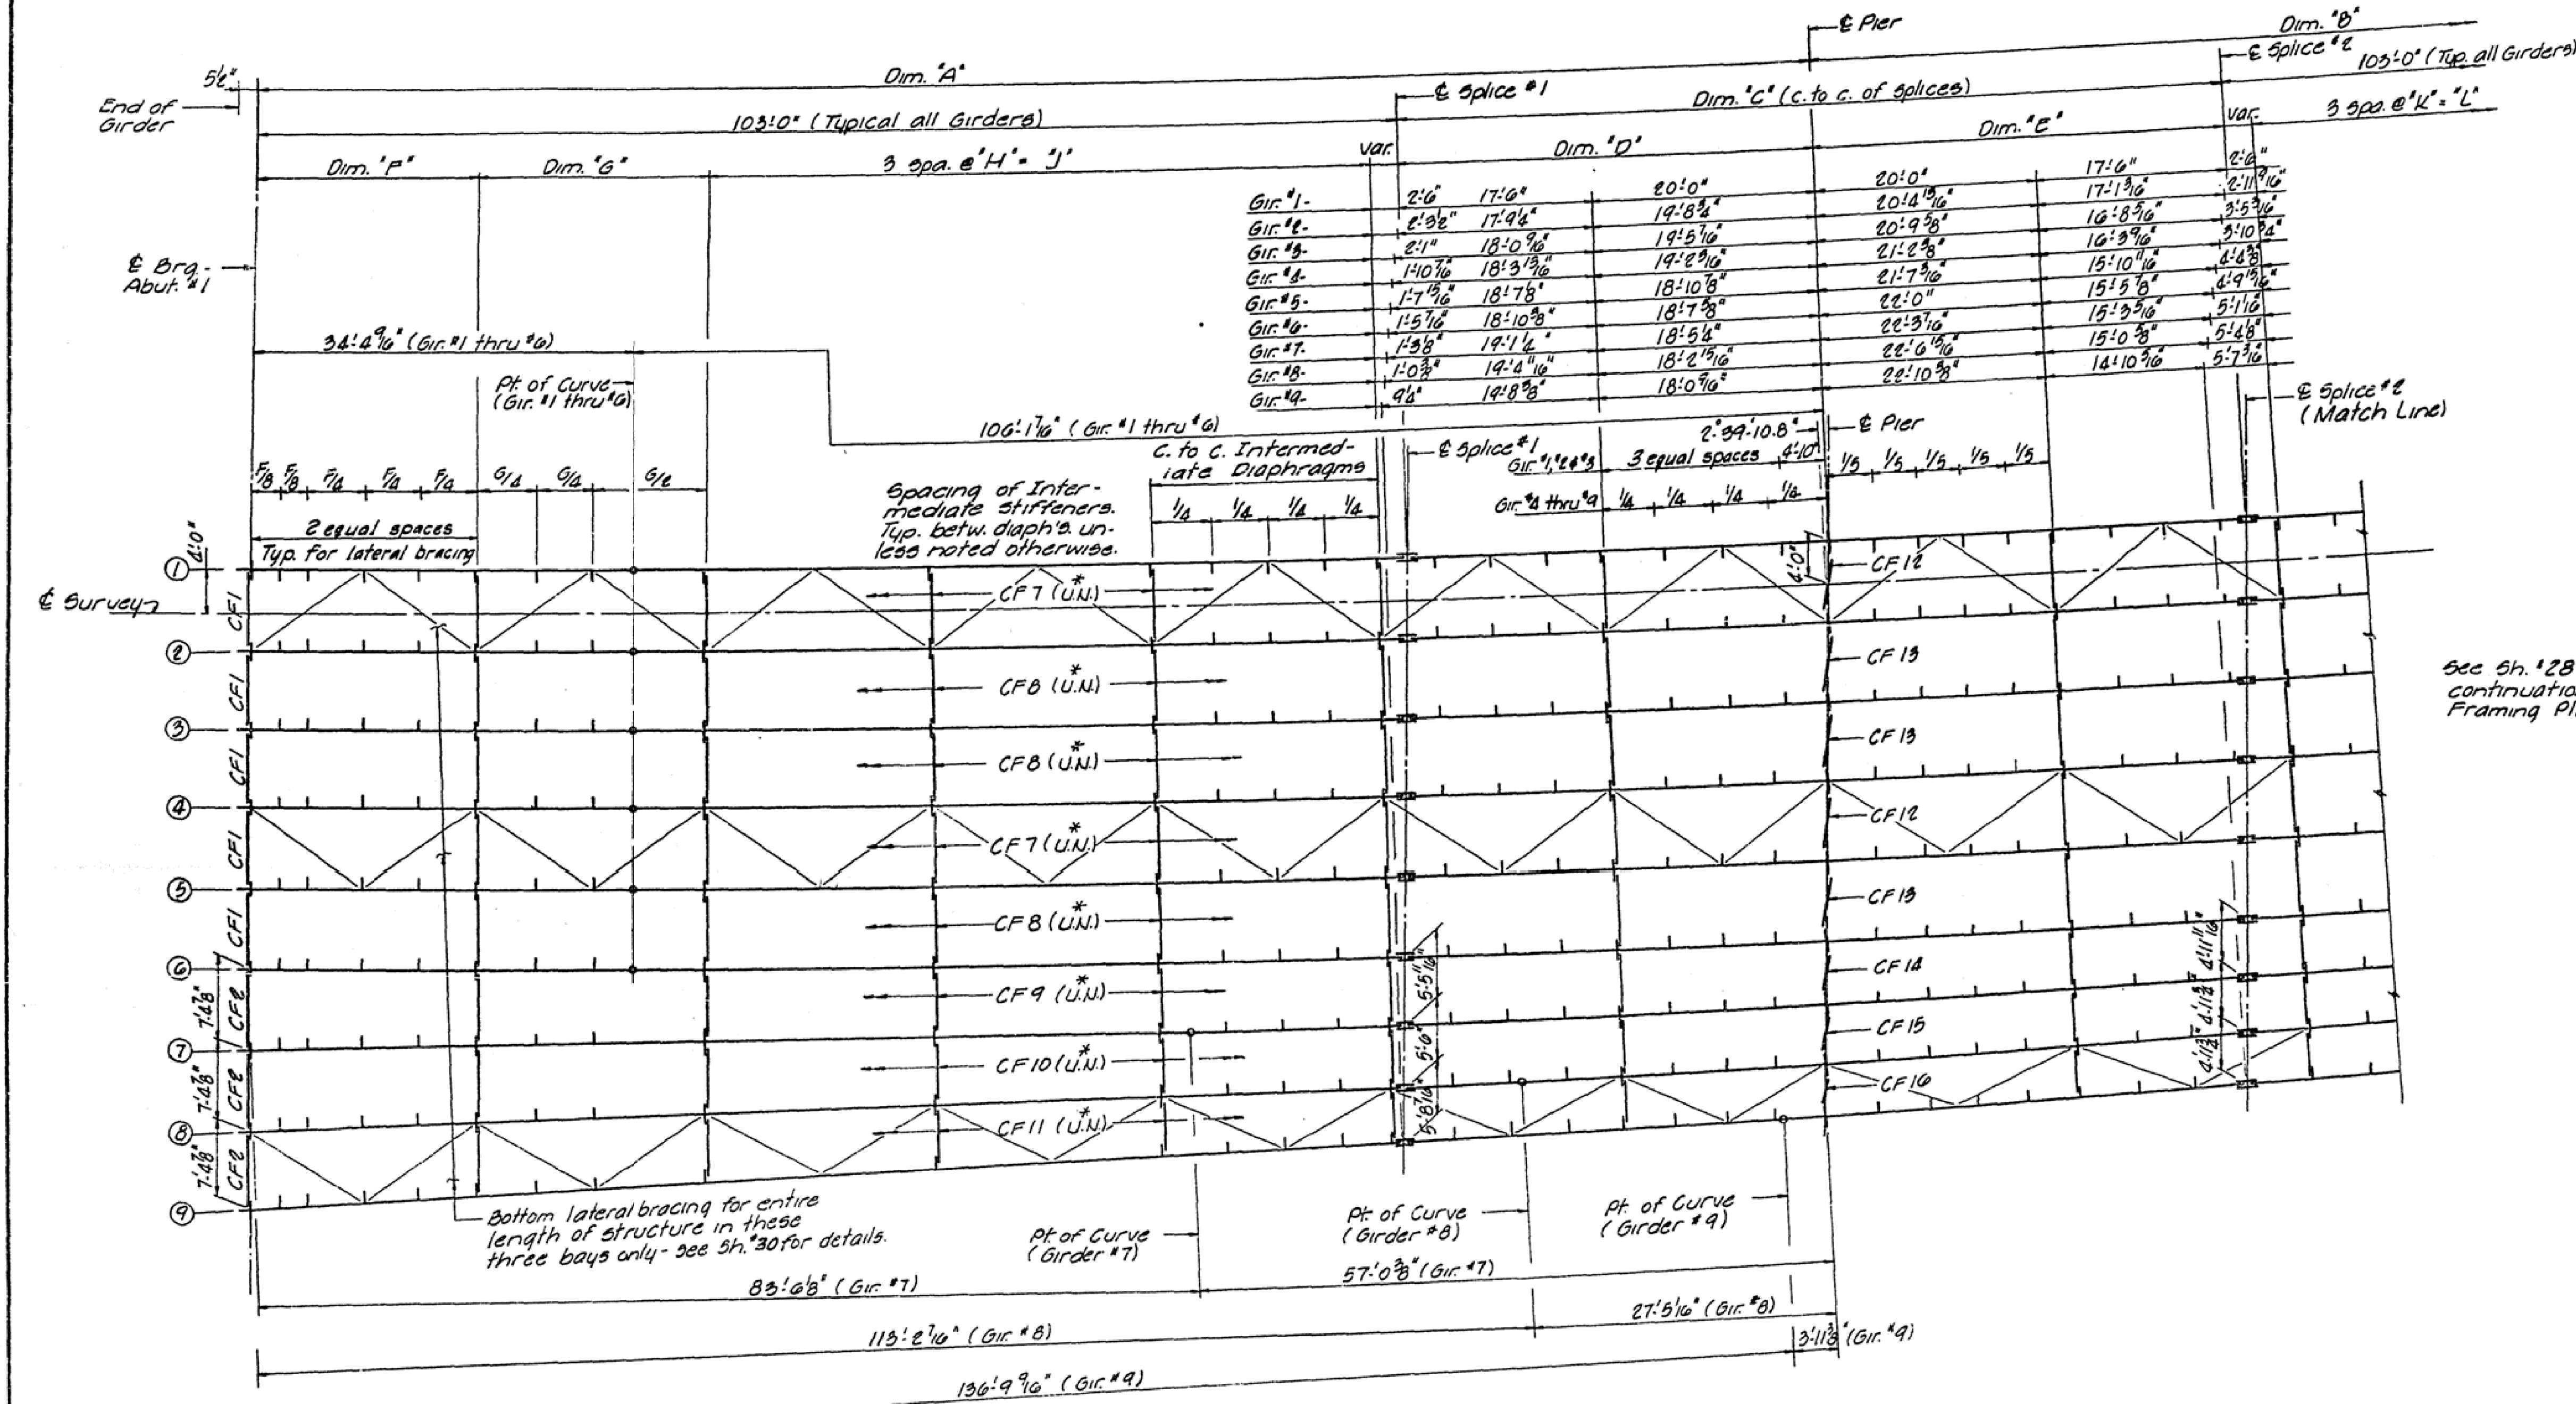 ℄ Pier
Dim. "B"
5½"
Dim. "A"
℄ Splice #2
103'-0" (Typ. all Girders)
End of
Girder
℄ Splice #1
Dim. "C" (c. to c. of splices)
103'-0" (Typical all Girders)
var.
3 spa. @ "K" = "L"
Dim. "F"
Dim. "G"
3 spa. @ "H" = "J"
var.
Dim. "D"
Dim. "E"
Gir. #1- 2'-6" 17'-6" 20'-0" 20'-0" 17'-6" 2'-6"
Gir. #2- 2'-3½" 17'-9¼" 19'-8¾" 20'-4 13/16" 17'-1 3/16" 2'-11 9/16"
Gir. #3- 2'-1" 18'-0 9/16" 19'-5 7/16" 20'-9⅝" 16'-8 5/16" 3'-5 3/16"
Gir. #4- 1'-10 7/16" 18'-3 13/16" 19'-2 3/16" 21'-2⅜" 16'-3 9/16" 3'-10¾"
Gir. #5- 1'-7 15/16" 18'-7⅛" 18'-10⅞" 21'-7 3/16" 15'-10 11/16" 4'-4⅜"
Gir. #6- 1'-5 7/16" 18'-10⅜" 18'-7⅝" 22'-0" 15'-5⅞" 4'-9 15/16"
Gir. #7- 1'-3⅛" 19'-1¼" 18'-5¼" 22'-3 7/16" 15'-3 5/16" 5'-1 1/16"
Gir. #8- 1'-0⅜" 19'-4 11/16" 18'-2 15/16" 22'-6 15/16" 15'-0⅝" 5'-4⅛"
Gir. #9- 9¼" 19'-8⅜" 18'-0 9/16" 22'-10⅝" 14'-10 5/16" 5'-7 3/16"
℄ Brg.-
Abut. #1
34'-4 9/16" (Gir. #1 thru #6)
Pt. of Curve
(Gir. #1 thru #6)
℄ Splice #2
(Match Line)
106'-1 7/16" (Gir. #1 thru #6)
2°-39'-10.8"
℄ Pier
C. to C. Intermed-
iate Diaphragms
℄ Splice #1
Gir. #1, #2 & #3
3 equal spaces
4'-10"
F/8 F/8 F/4 F/4 F/4 G/4 G/4 G/2
1/5 1/5 1/5 1/5 1/5
Spacing of Inter-
mediate stiffeners.
Typ. betw. diaph's. un-
less noted otherwise.
1/4 1/4 1/4 1/4
Gir. #4 thru #9 1/4 1/4 1/4 1/4
2 equal spaces
Typ. for lateral bracing
4'-0"
4'-0"
①
CF1
CF 7 (U.N.)*
CF 12
℄ Survey
②
CF1
CF 8 (U.N.)*
CF 13
See Sh. #28
Framing
③
CF1
CF 8 (U.N.)*
CF 13
④
CF1
CF 7 (U.N.)*
CF 12
⑤
CF1
CF 8 (U.N.)*
CF 13
⑥
7'-4⅞"
CF2
CF 9 (U.N.)*
5'-5 11/16"
CF 14
4'-11 11/16"
⑦
7'-4⅞"
CF2
CF 10 (U.N.)*
5'-6"
CF 15
4'-11¾"
⑧
7'-4⅞"
CF2
CF 11 (U.N.)*
5'-8 7/16"
CF 16
4'-11¾"
⑨
Bottom lateral bracing for entire
length of structure in these
three bays only - see Sh. #30 for details.
Pt. of Curve
(Girder #7)
Pt. of Curve
(Girder #8)
Pt. of Curve
(Girder #9)
83'-6⅛" (Gir. #7)
57'-0⅜" (Gir. #7)
113'-2 7/16" (Gir. #8)
27'-5 1/16" (Gir. #8)
136'-9 9/16" (Gir. #9)
3'-11⅜" (Gir. #9)